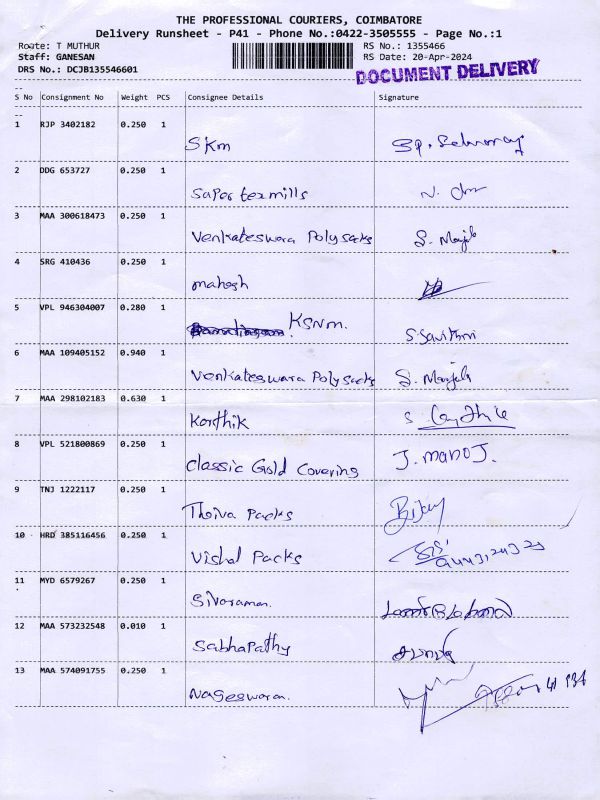 THE PROFESSIONAL COURIERS, COIMBATORE
Delivery Runsheet - P41 - Phone No.:0422-3505555 - Page No.:1
Route: T MUTHUR RS No.: 1355466
Staff: GANESAN RS Date: 20-Apr-2024
DRS No.: DCJB135546601 DOCUMENT DELIVERY
--
S No Consignment No Weight PCS Consignee Details Signature
--
1 RJP 3402182 0.250 1
SKm
2 DDG 653727 0.250 1
Super texmills
3 MAA 300618473 0.250 1
Venkateswara Poly sacks
4 SRG 410436 0.250 1
mahesh
5 VPL 946304007 0.280 1
KSNM. S. Savithri
6 MAA 109405152 0.940 1
Venkateswara Poly sacks
7 MAA 298102183 0.630 1
Karthik S.
8 VPL 521800869 0.250 1
Classic Gold Covering J. MANOJ.
9 TNJ 1222117 0.250 1
Thoiva Packs
10 HRD 385116456 0.250 1
Vishal Packs
11 MYD 6579267 0.250 1
Sivaraman.
12 MAA 573232548 0.010 1
Sabhapathy
13 MAA 574091755 0.250 1
Nageswaran.